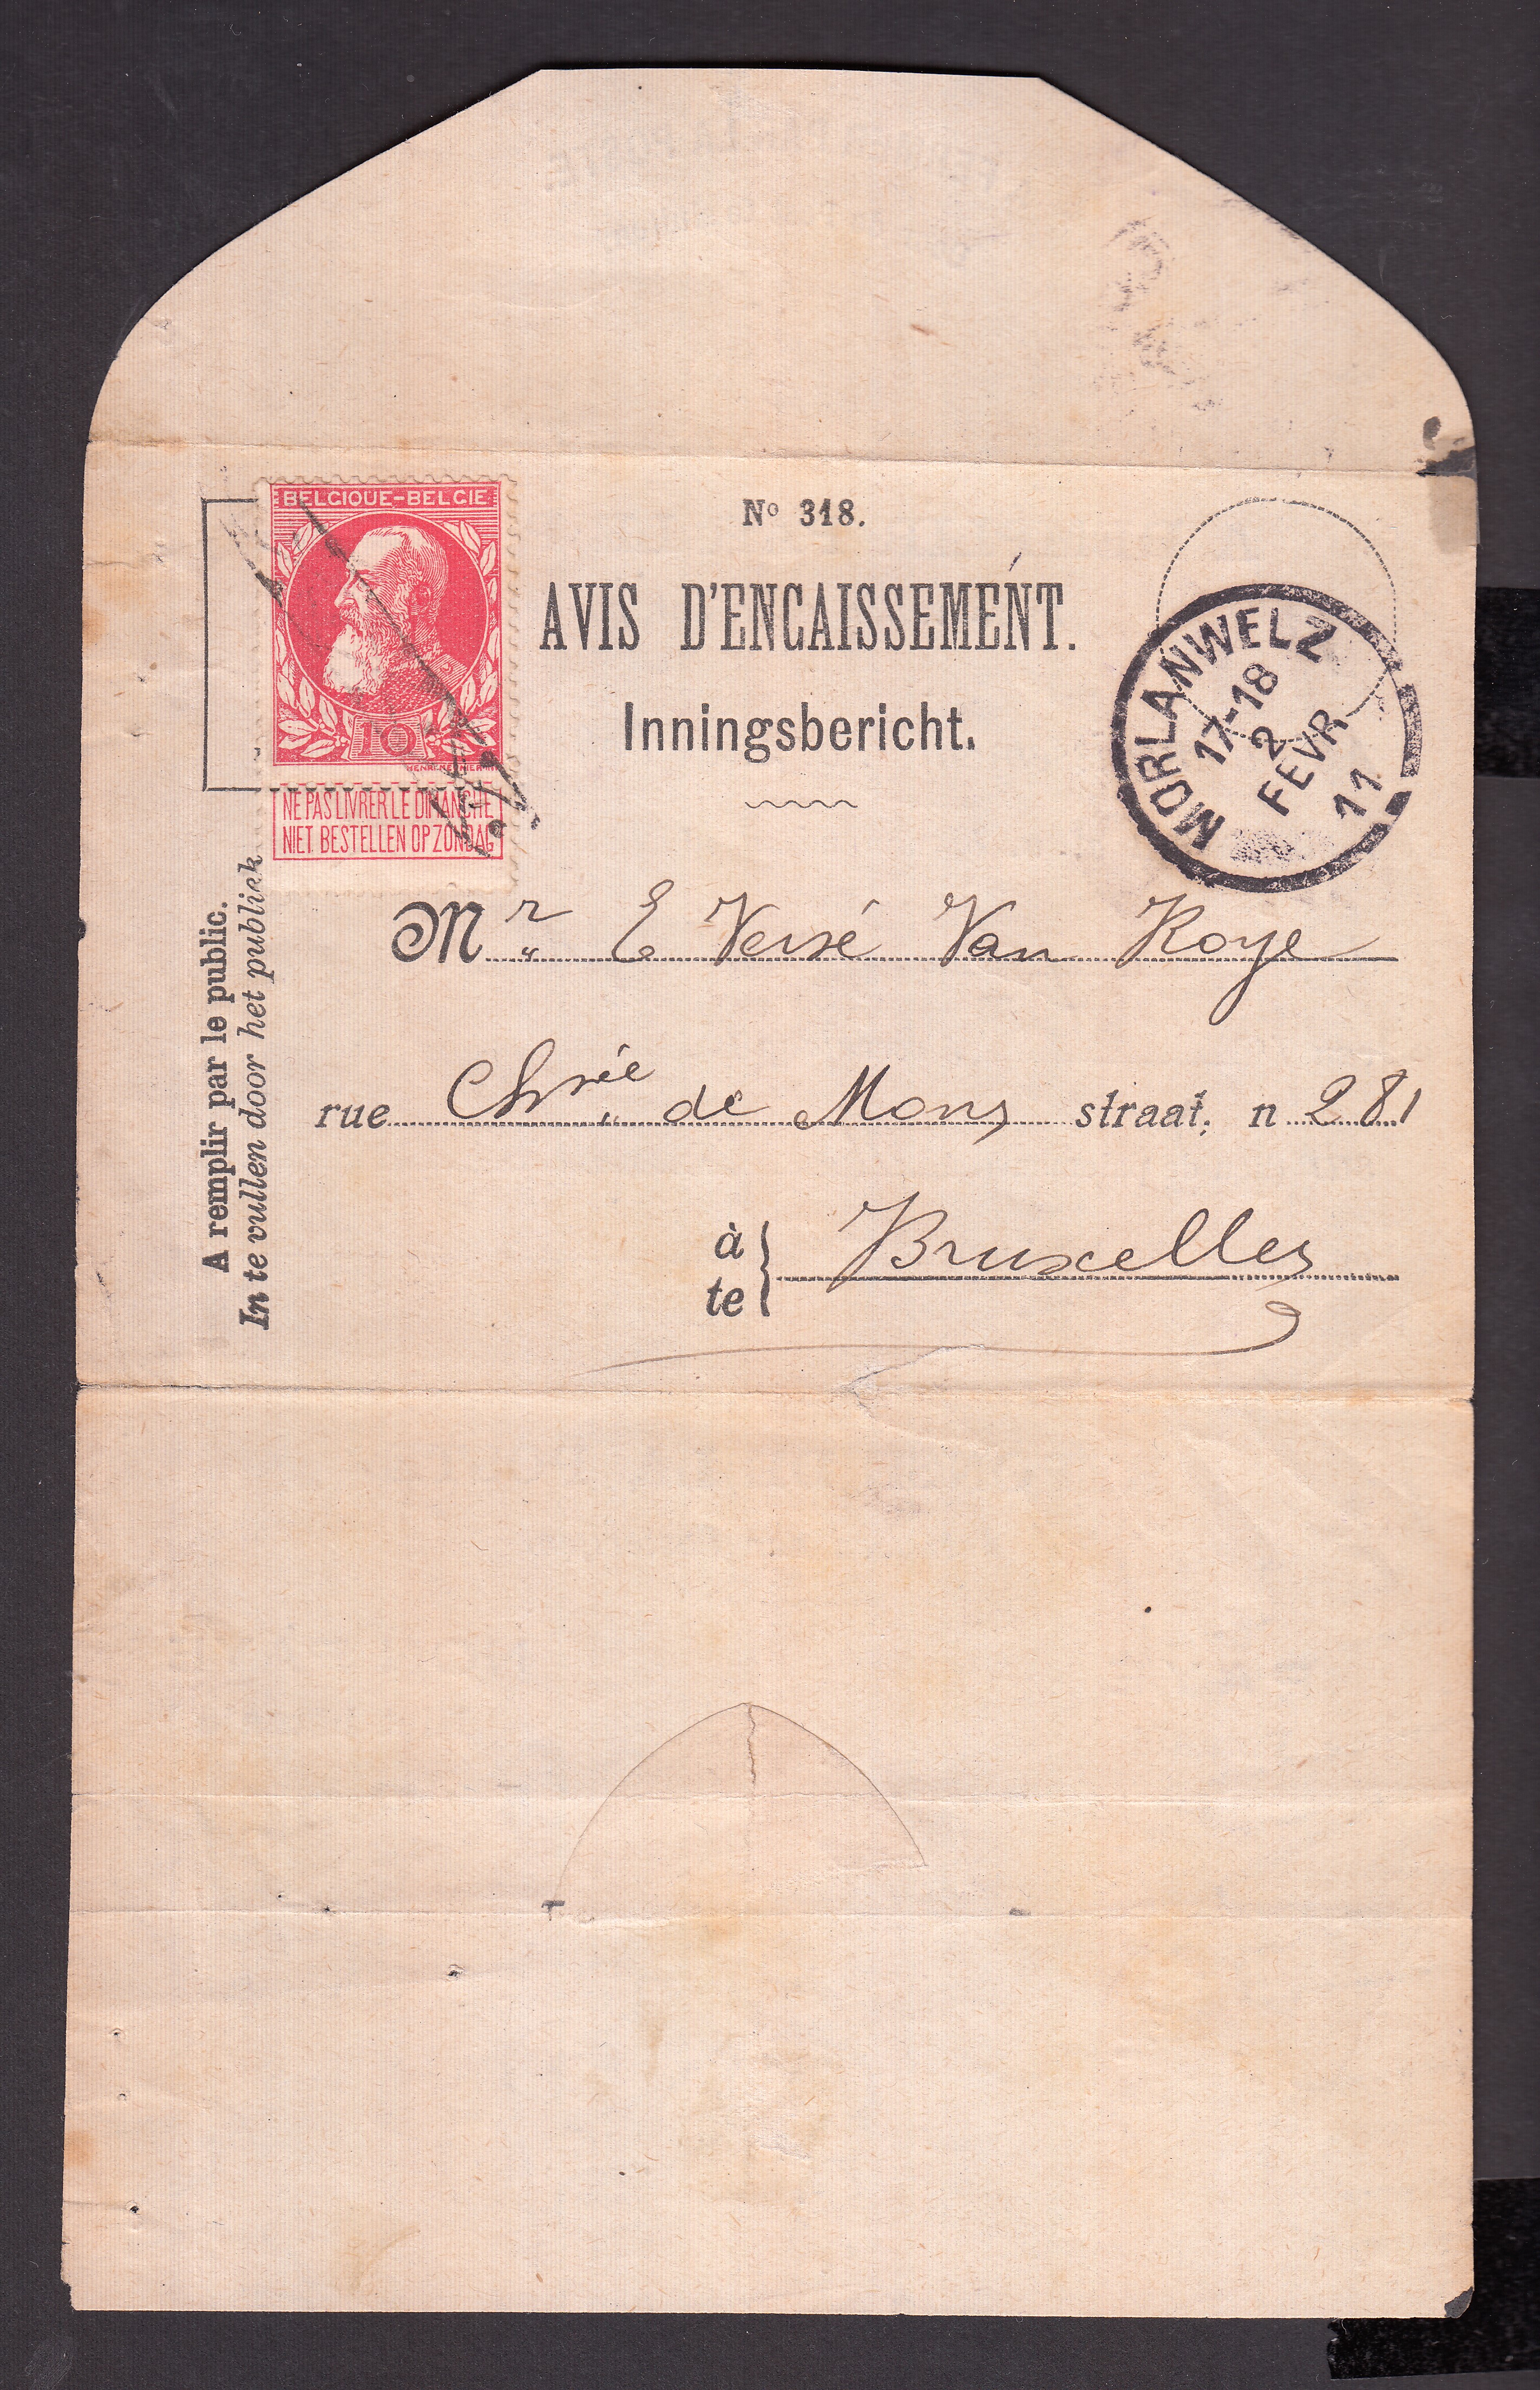 BELGIQUE-BELGIE
10
HENRI MEUNIER
NE PAS LIVRER LE DIMANCHE
NIET BESTELLEN OP ZONDAG
Nº 318.
AVIS D'ENCAISSEMENT.
Inningsbericht.
MORLANWELZ
17-18
2
FEVR
11
A remplir par le public.
In te vullen door het publiek
Mr E Versé Van Roye
rue Chssée de Mons straat, n 281
à
te
Bruxelles